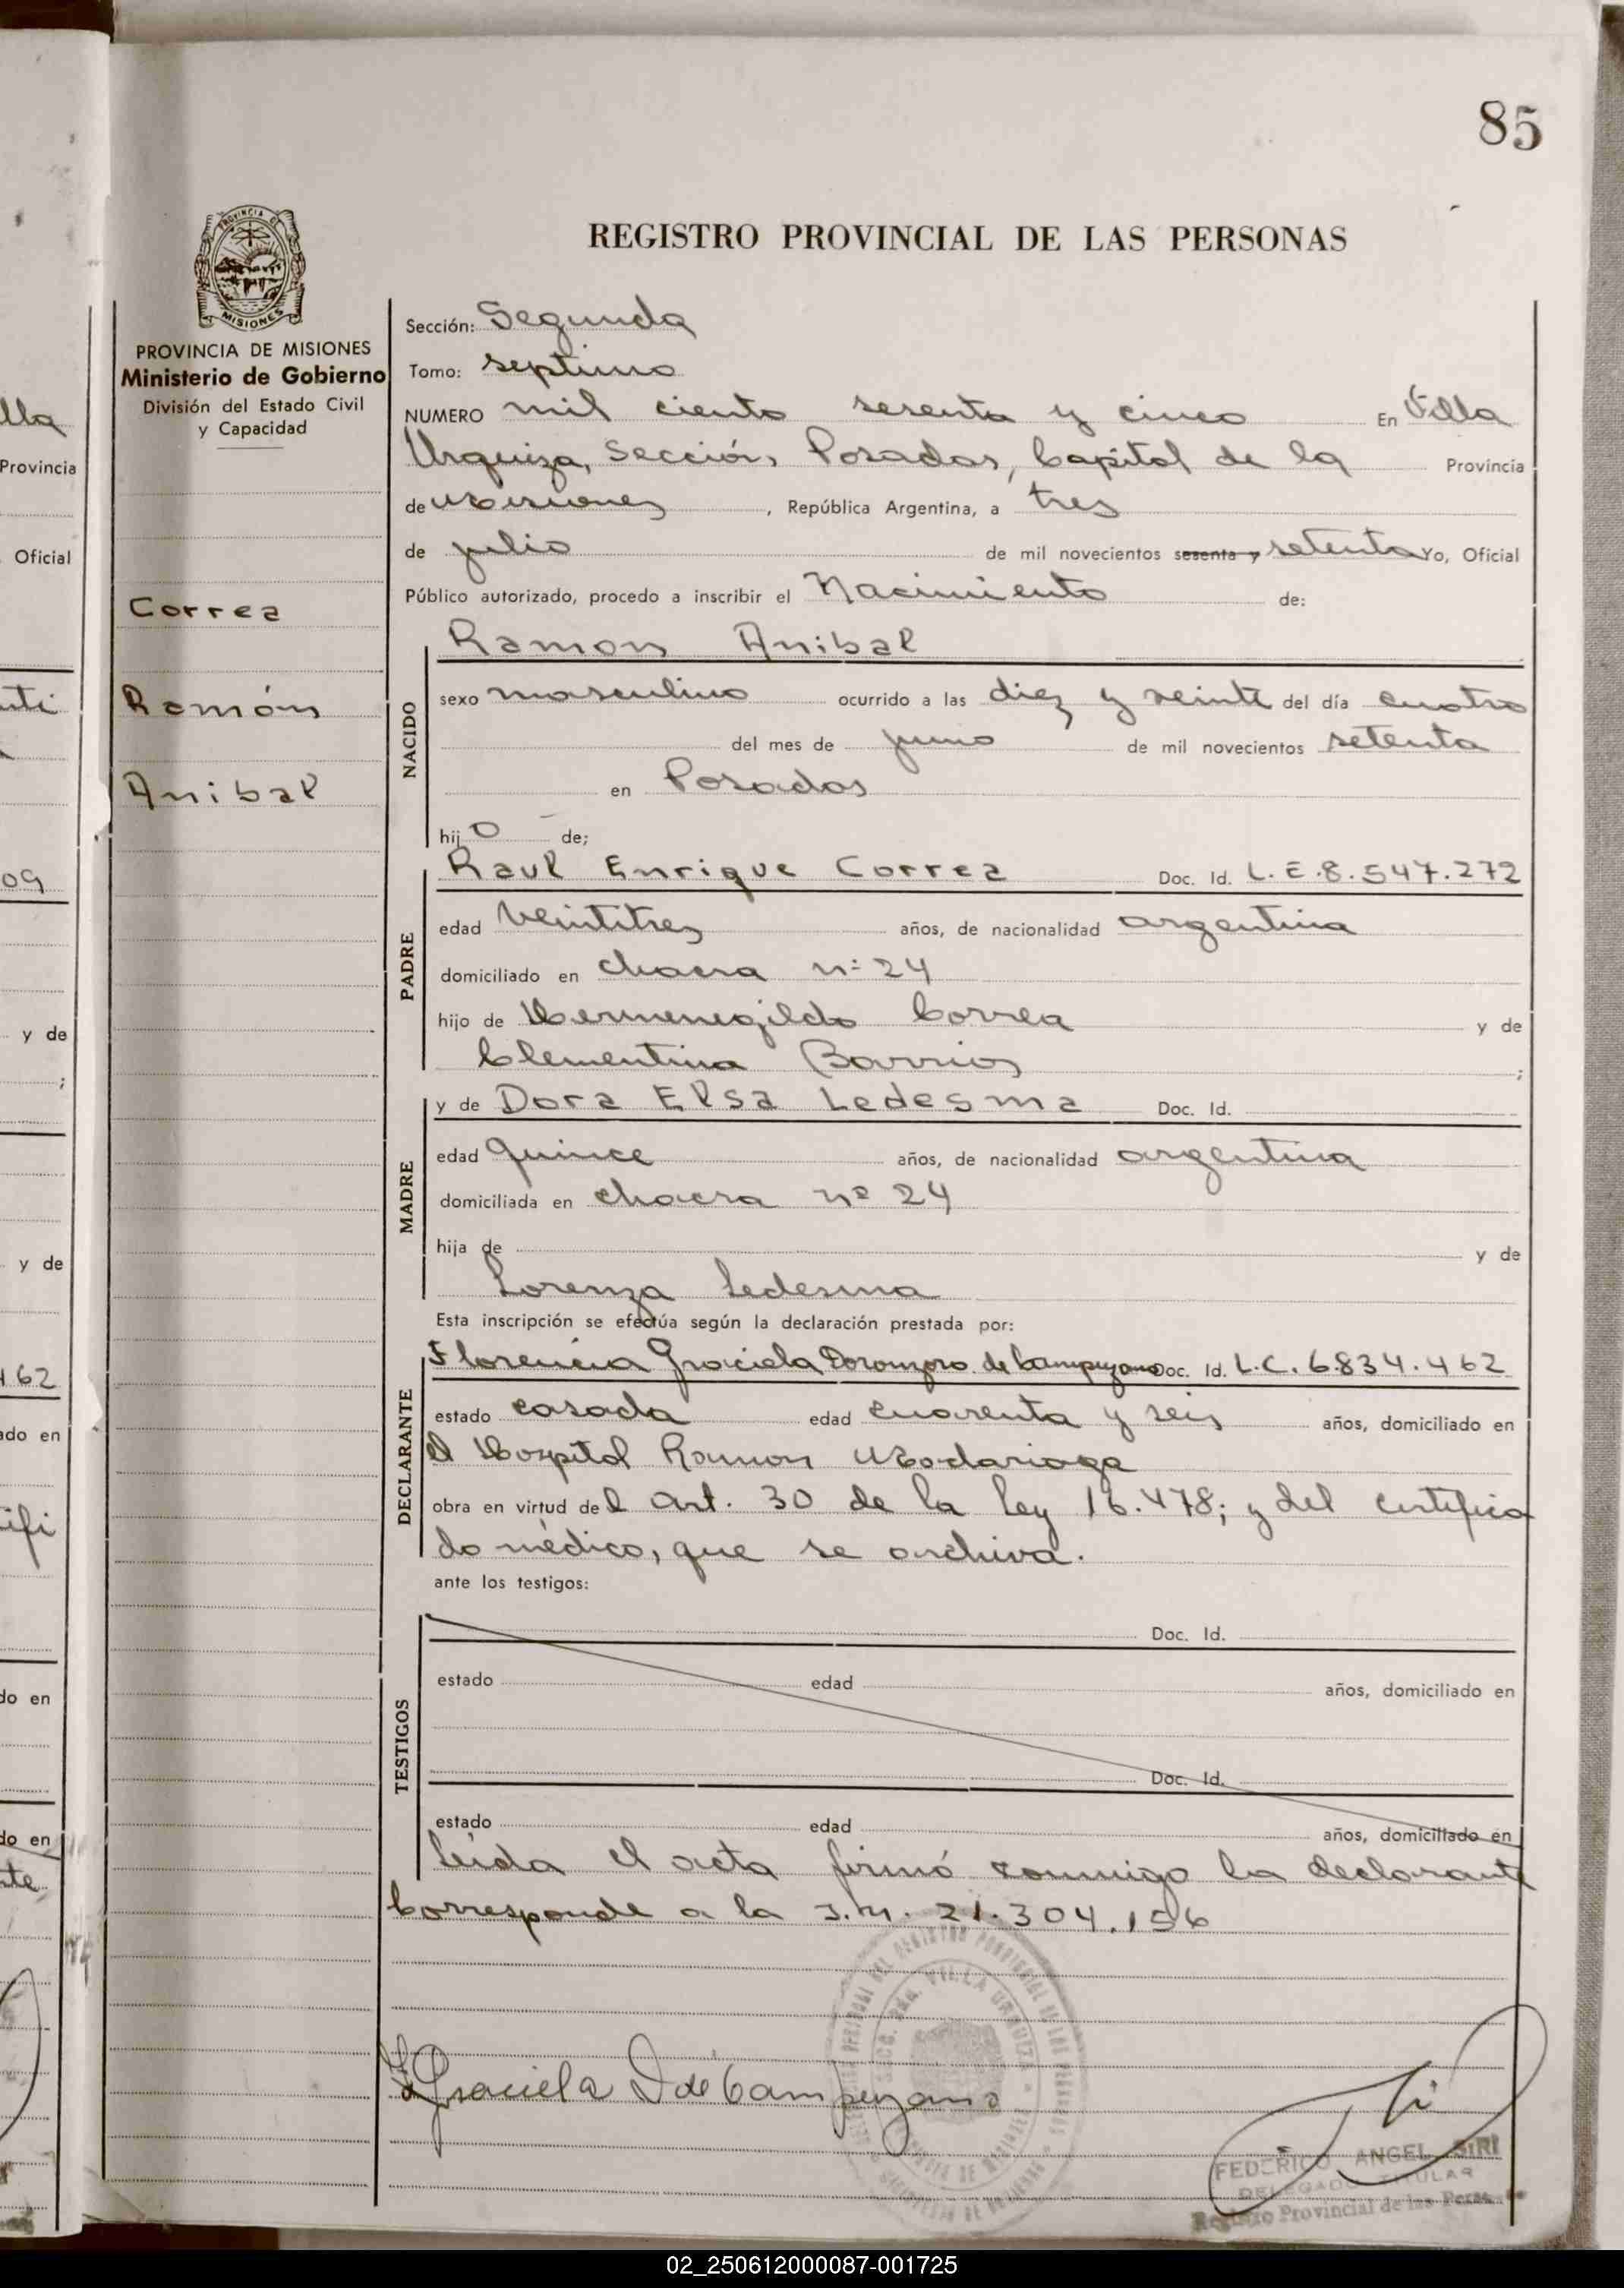 85
REGISTRO PROVINCIAL DE LAS PERSONAS
PROVINCIA DE MISIONES
Ministerio de Gobierno
División del Estado Civil
y Capacidad
Correa
Ramón
Anibal
Sección: Segunda
Tomo: septimo
NUMERO mil ciento sesenta y cinco En Villa
Urquiza, Sección, Posadas, Capital de la Provincia
de Misiones, República Argentina, a tres
de julio de mil novecientos sesenta y setenta Yo, Oficial
Público autorizado, procedo a inscribir el Nacimiento de:
NACIDO
Ramon Anibal
sexo masculino ocurrido a las diez y veinte del día cuatro
del mes de junio de mil novecientos setenta
en Posadas
hijo de;
PADRE
Raul Enrique Correa Doc. Id. L.E.8.547.272
edad veintitres años, de nacionalidad argentina
domiciliado en chacra n: 24
hijo de Hermenegildo Correa y de
Clementina Barrios ;
MADRE
y de Dora Elsa Ledesma Doc. Id.
edad quince años, de nacionalidad argentina
domiciliada en chacra nº 24
hija de y de
Lorenza Ledesma
Esta inscripción se efectúa según la declaración prestada por:
DECLARANTE
Florencia Graciela de Campuzano Doc. Id. L.C. 6.834.462
estado casada edad cuarenta y seis años, domiciliado en
el Hospital Ramon Madariaga
obra en virtud del art. 30 de la ley 16.478; y del certifica
do médico, que se archiva.
ante los testigos:
TESTIGOS
Doc. Id.
estado edad años, domiciliado en
Doc. Id.
estado edad años, domiciliado en
Leida el acta firmó conmigo la declarante
Corresponde a la I.M. 21.304.156
Graciela D de Campuzano
FEDERICO ANGEL SIRI
DELEGADO TITULAR
Registro Provincial de las Personas
02_250612000087-001725